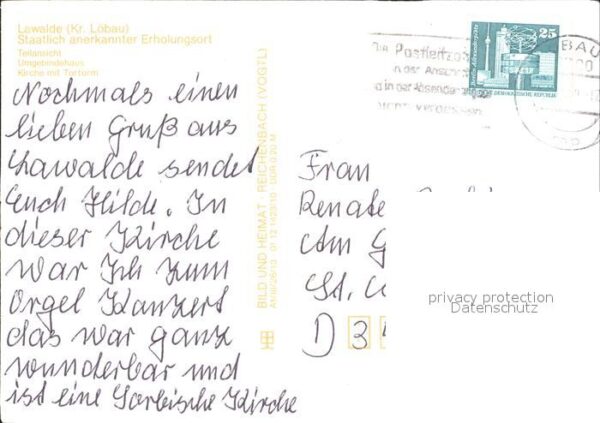 Lawalde (Kr. Löbau)
Staatlich anerkannter Erholungsort
Teilansicht
Umgebindehaus
Kirche mit Torturm
Nochmals einen
lieben Gruß aus
Lawalde sendet
Euch Hilde. In
dieser Kirche
war Ich zum
Orgel Kanzert
das war ganz
wunderbar und
ist eine Sorbische Kirche
BILD UND HEIMAT REICHENBACH (VOGTL)
25
DEUTSCHE DEMOKRATISCHE REPUBLIK
Postleitza
in der Anschri
in der Absenderangabe
nicht vergessen
BAU
Frau
Renate
Am G
St.
D 3
privacy protection
Datenschutz